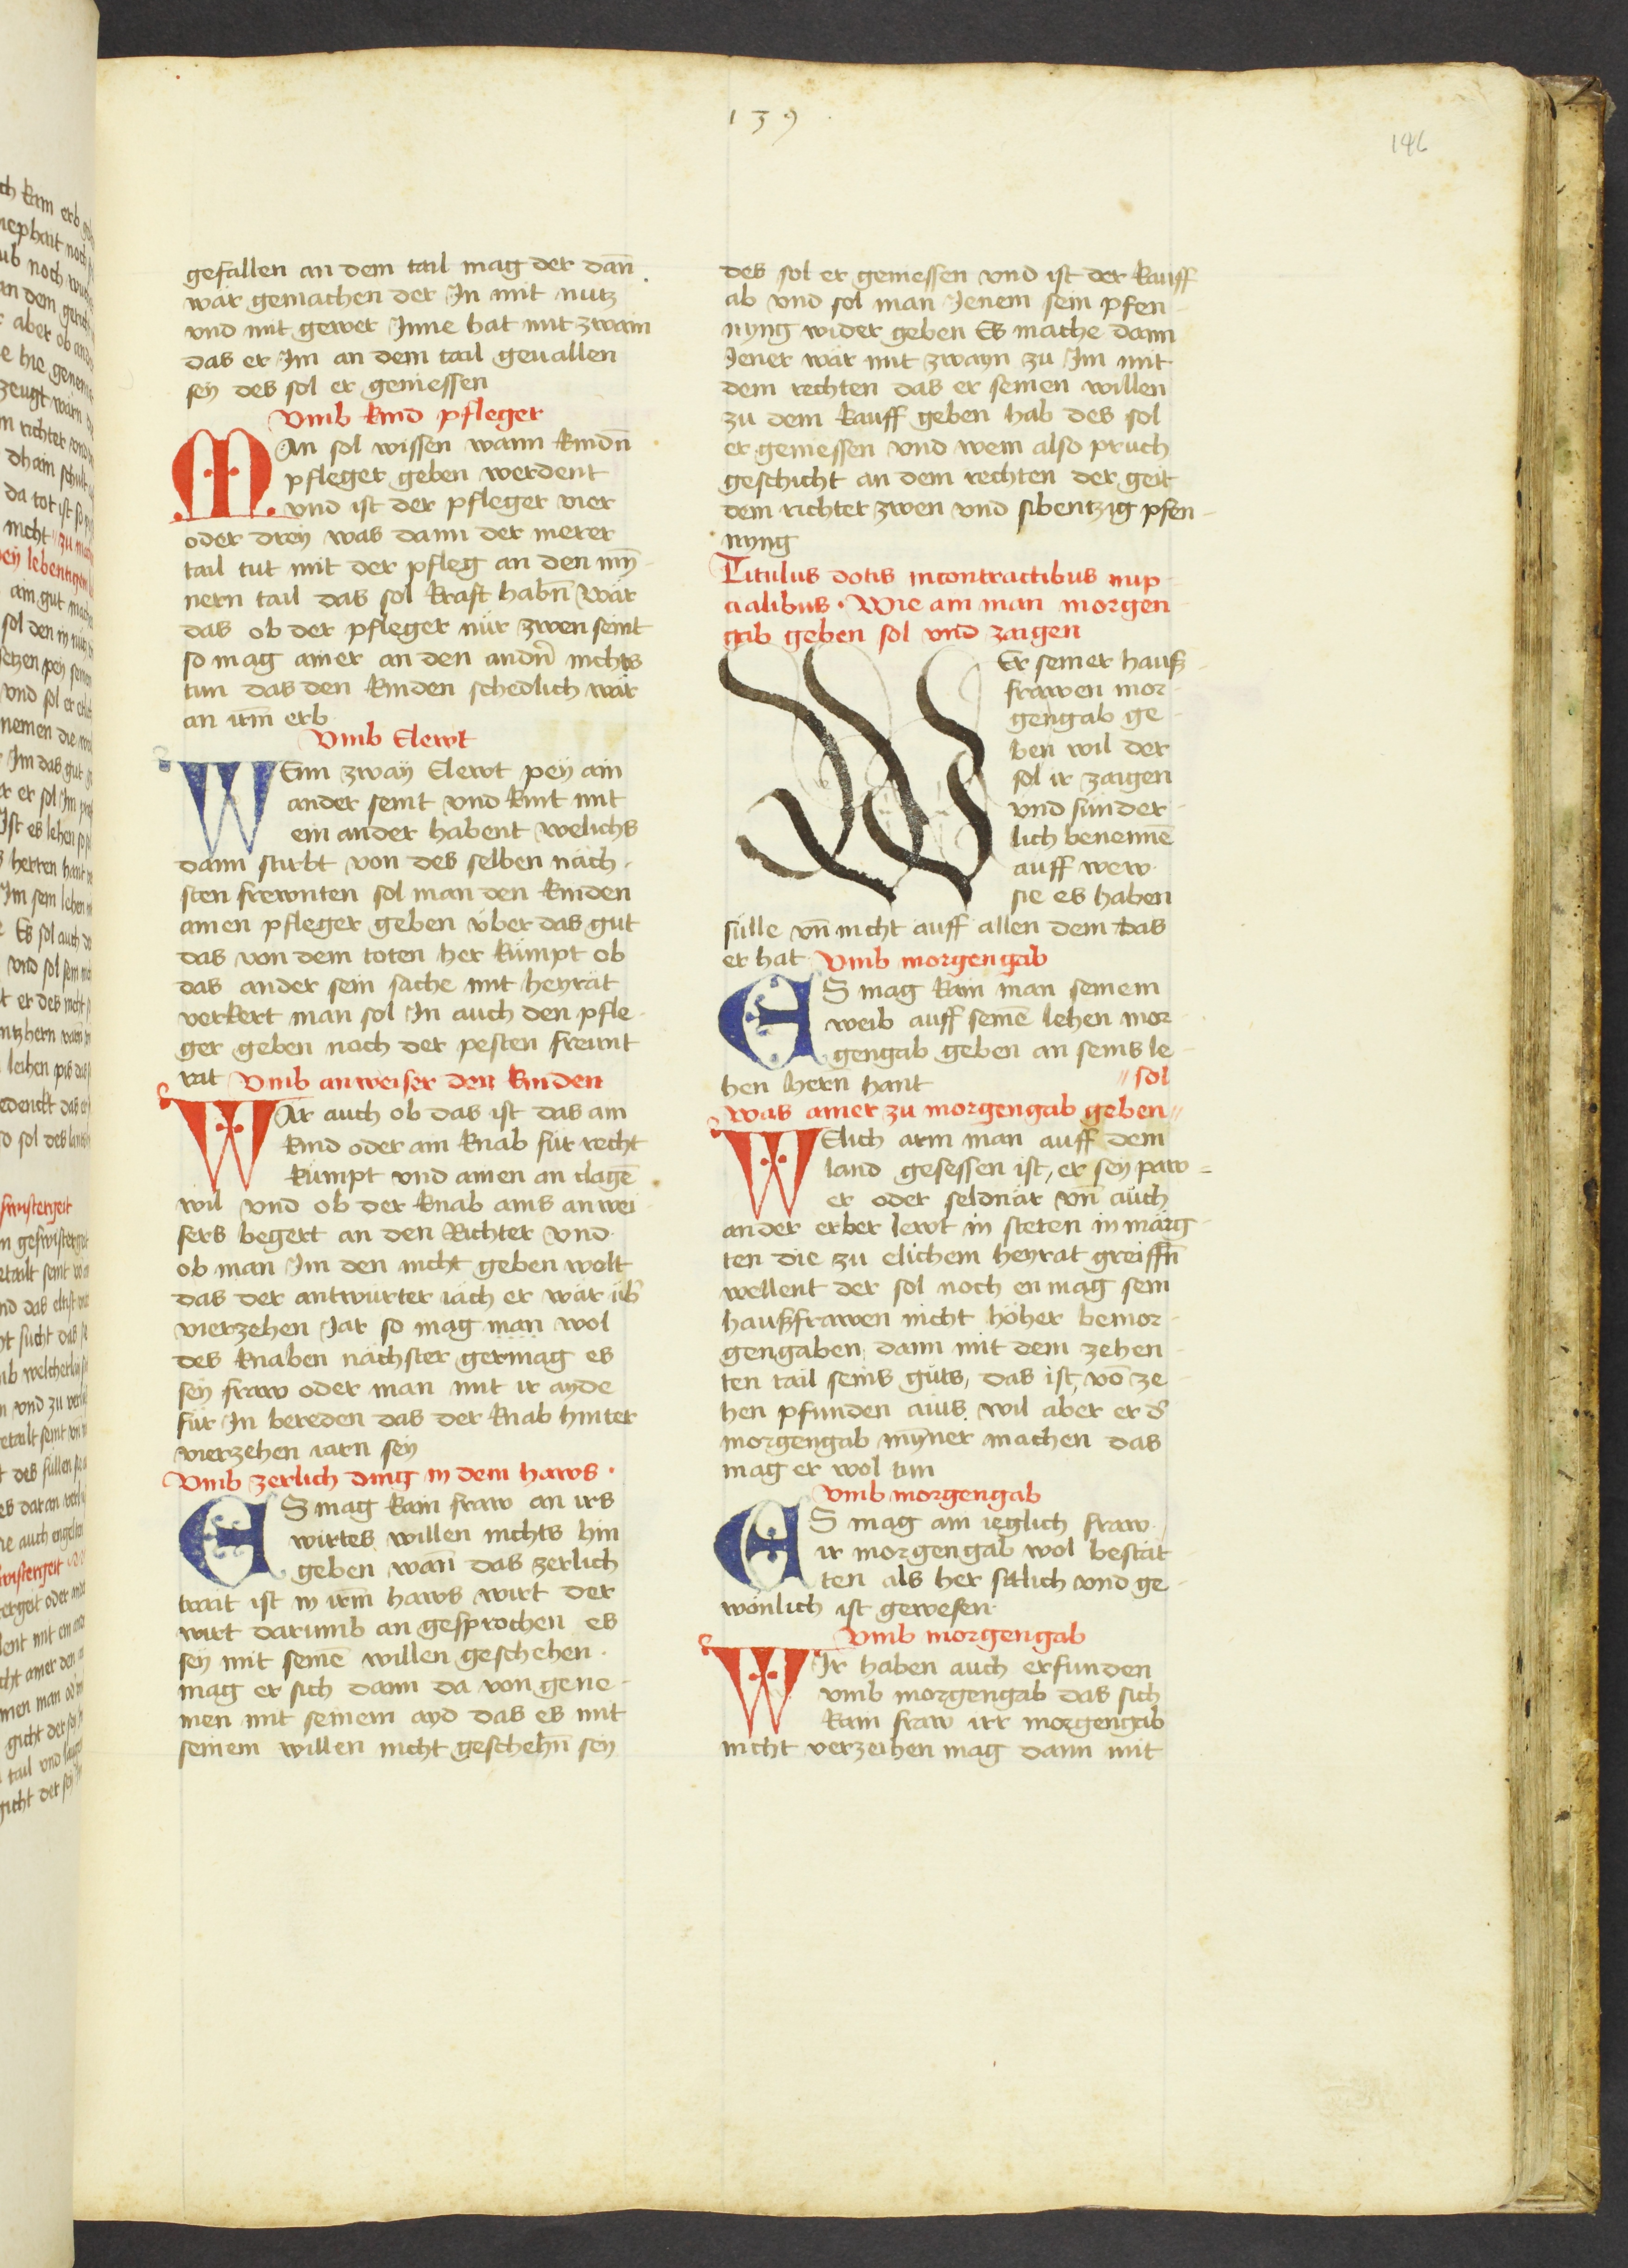 139
146
gefallen an dem tail mag der dan̄
wär gemachen der In mit nutz
vnd mit gewer Inne hat mit zwain
das er Im an dem tail geuallen
sey des sol er geniessen
Vmb kind pfleger
MAn sol wissen wann kindn̄
pfleger geben werdent
vnd ist der pfleger vier
oder drey was dann der merer
tail tut mit der pfleg an den myn̄
nern tail das sol kraft habn̄ wär
das ob der pfleger nür zwen seint
so mag ainer an den andn̄ nichts
tun das den kinden schedlich wär
an irm̄ erb
Vmb Elewt
WEnn zway Elewt pey ain
ander seint vnd kint mit
ein ander habent welichs
dann stirbt von des selben näch
sten frewnten sol man den kinden
ainen pfleger geben vber das gut
das von dem toten her kümpt ob
das ander sein sache mit heyrät
verkert man sol In auch den pfle
ger geben nach der pesten freunt
rat Vmb anweiser den kinden
WAr auch ob das ist das ain
kind oder ain knab für recht
kümpt vnd ainen an clagē
wil vnd ob der knab ains anwei
sers begert an den Richter vnd
ob man Im den nicht geben wolt
das der antwurter iäch er wär üb̄
vierzehen Jar so mag man wol
des knaben nächster germag es
sey fraw oder man mit ir ayde
für In bereden das der knab hinter
vierzehen iarn sey
Vmb zerlich ding in dem haws
ES mag kain fraw an irs
wirtes willen nichts hin
geben wan̄ das zerlich
trait ist in irm̄ haws wirt der
wirt darumb an gesprochen es
sey mit seinē willen geschehen
mag er sich dann da von gene
men mit seinem ayd das es mit
seinem willen nicht geschehn̄ sey
des sol er geniessen vnd ist der kauff
ab vnd sol man Jenem sein pfen
nyng wider geben Es mache dann
Jener wär mit zwayn zu Im mit
dem rechten das er seinen willen
zu dem kauff geben hab des sol
er geniessen vnd wem also pruch
geschicht an dem rechten der geit
dem richter zwen vnd sibentzig pfen
nyng
Titulus dotis incontractibus nup
cialibus. Wie ain man morgen
gab geben sol vnd zaigen
WEr seiner hauß
frawen mor
gengab ge
ben wil der
sol ir zaigen
vnd sunder
lich benennē
auff wew
sie es haben
sülle vn̄ nicht auff allen dem das
er hat Vmb morgengab
ES mag kain man seinem
weib auff seinē lehen mor
gengab geben an seins le
hen hern hant
was ainer zu morgengab geben // // sol
WElich arm man auff dem
land gesessen ist, er sey paw=
er oder seldnär vn̄ auch
ander erber lewt in steten in märg
ten die zu elichem heyrat greiffn̄
wellent der sol noch en mag sein
haußfrawen nicht höher bemor
gengaben dann mit dem zehen
ten tail seins guts, das ist, vō ze
hen pfunden ains. wil aber er d̄
morgengab myn̄er machen das
mag er wol tun
Vmb morgengab
ES mag ain ieglich fraw
ir morgengab wol bestät
ten als her sitlich vnd ge
wönlich ist gewesen
Vmb morgengab
WIr haben auch erfunden
vmb morgengab das sich
kain fraw irr morgengab
nicht verzeihen mag dann mit